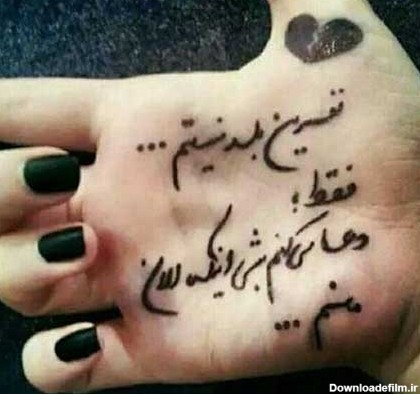 نفرین بلد نیستم ...
فقط ؛
دعا میکنم بشی اینکه الان
منم ...
Downloadefilm.ir